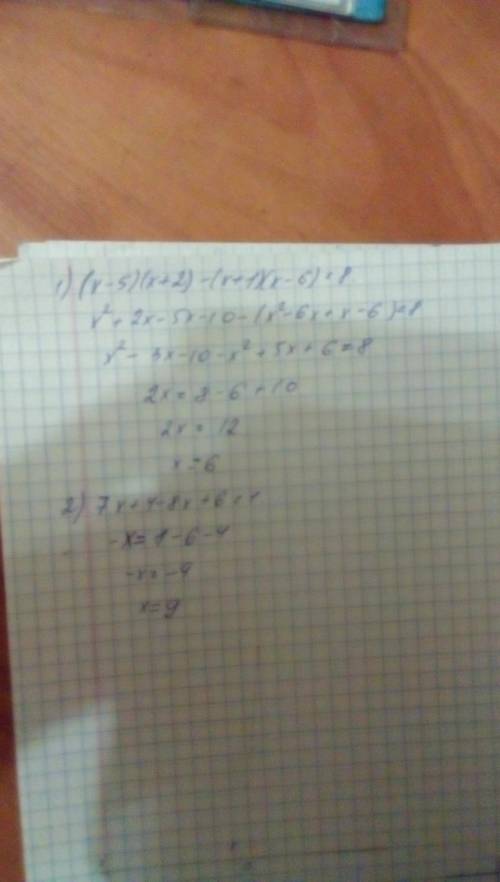 1) (x-5)(x+2)-(x+1)(x-6)=8
x²+2x-5x-10-(x²-6x+x-6)=8
x²-3x-10-x²+5x+6=8
2x=8-6+10
2x=12
x=6
2) 7x+4-8x+6=1
-x=1-6-4
-x=-9
x=9